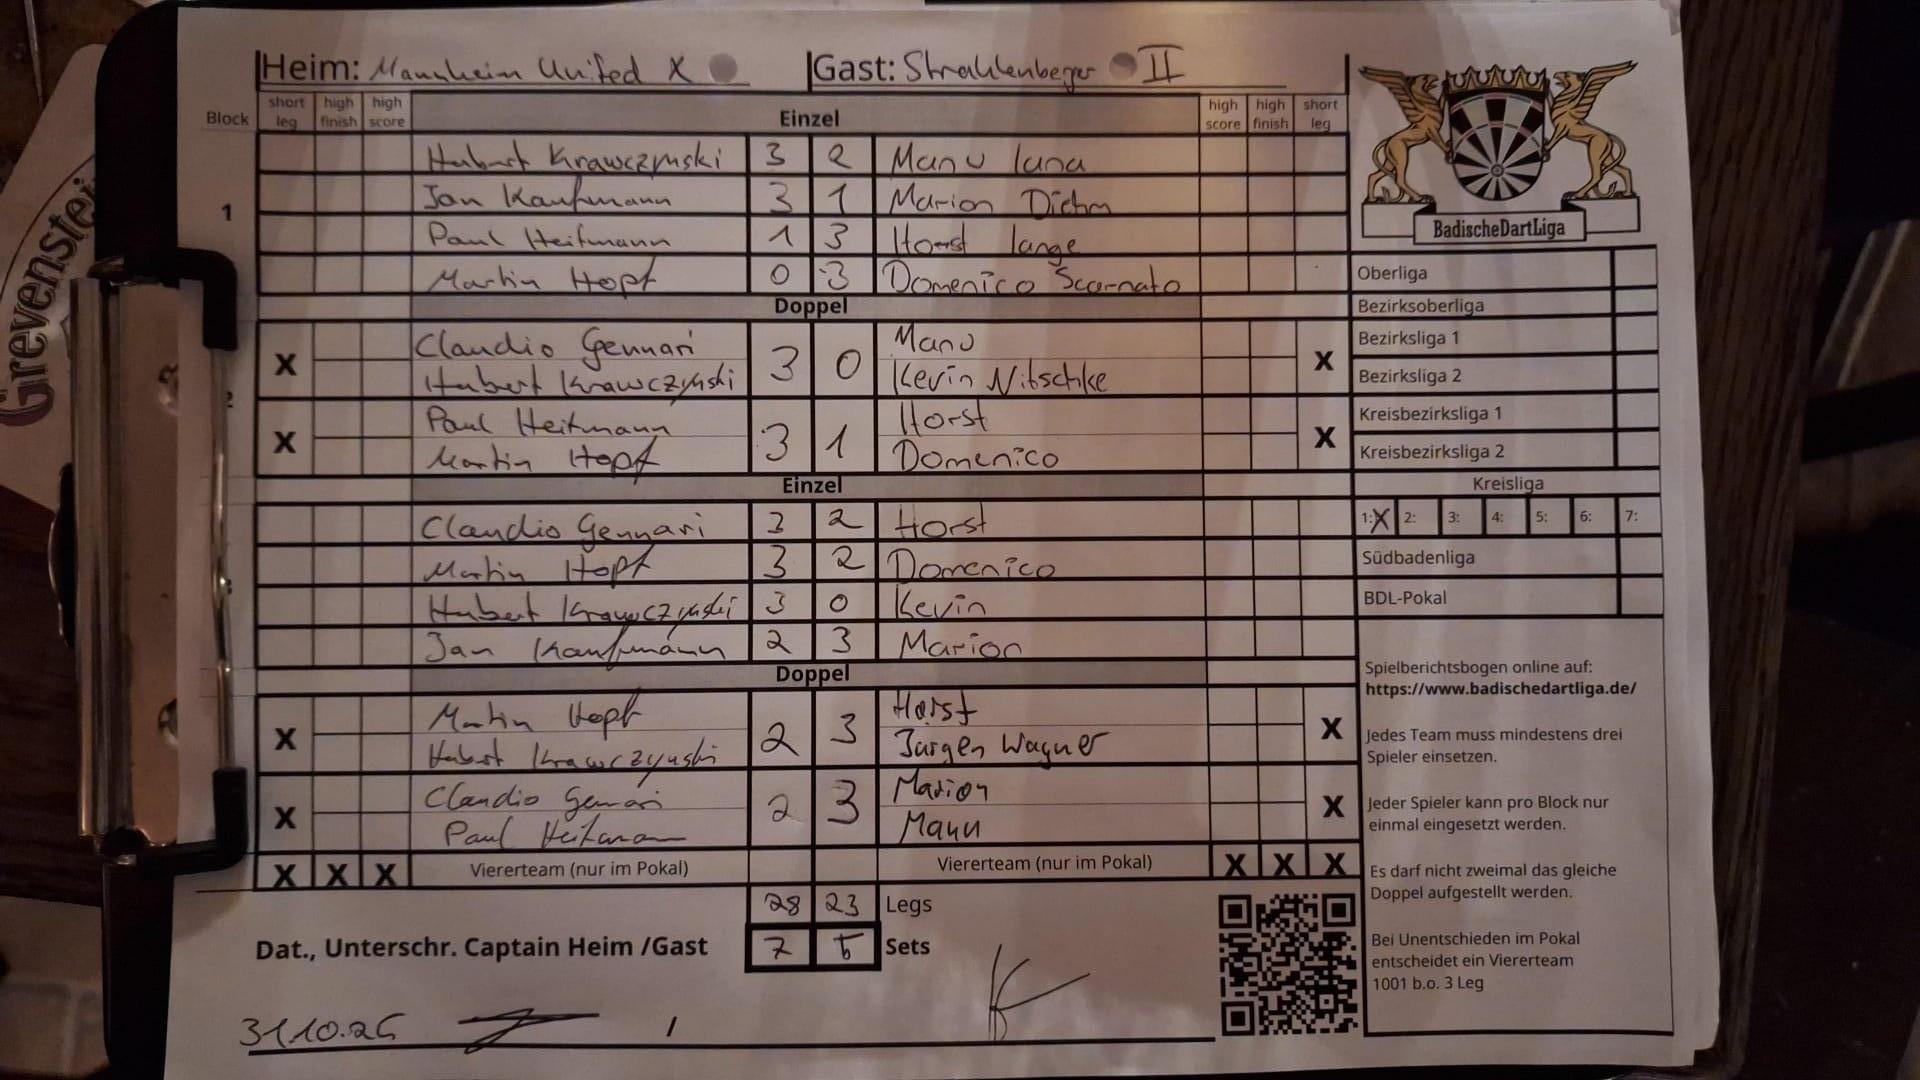 Heim: Mannheim United X Gast: Strahlenberger II
Block short leg high finish high score Einzel high score high finish short leg
1
Hubert Krawczynski 3 2 Manu Lana
Jan Kaufmann 3 1 Marion Diehm
Paul Heitmann 1 3 Horst Lange
Martin Hopf 0 3 Domenico Scornato
Doppel
X Claudio Gennari 3 0 Manu X
Hubert Krawczynski Kevin Nitschke
X Paul Heitmann 3 1 Horst X
Martin Hopf Domenico
Einzel
Claudio Gennari 3 2 Horst
Martin Hopf 3 2 Domenico
Hubert Krawczynski 3 0 Kevin
Jan Kaufmann 2 3 Marion
Doppel
X Martin Hopf 2 3 Horst X
Hubert Krawczynski Jürgen Wagner
X Claudio Gennari 2 3 Marion X
Paul Heitmann Manu
X X X Viererteam (nur im Pokal) Viererteam (nur im Pokal) X X X
28 23 Legs
Dat., Unterschr. Captain Heim /Gast 7 5 Sets
31.10.25 /
BadischeDartLiga
Oberliga
Bezirksoberliga
Bezirksliga 1
Bezirksliga 2
Kreisbezirksliga 1
Kreisbezirksliga 2
Kreisliga
1: X 2: 3: 4: 5: 6: 7:
Südbadenliga
BDL-Pokal
Spielberichtsbogen online auf:
https://www.badischedartliga.de/
Jedes Team muss mindestens drei
Spieler einsetzen.
Jeder Spieler kann pro Block nur
einmal eingesetzt werden.
Es darf nicht zweimal das gleiche
Doppel aufgestellt werden.
Bei Unentschieden im Pokal
entscheidet ein Viererteam
1001 b.o. 3 Leg
Grevenstein